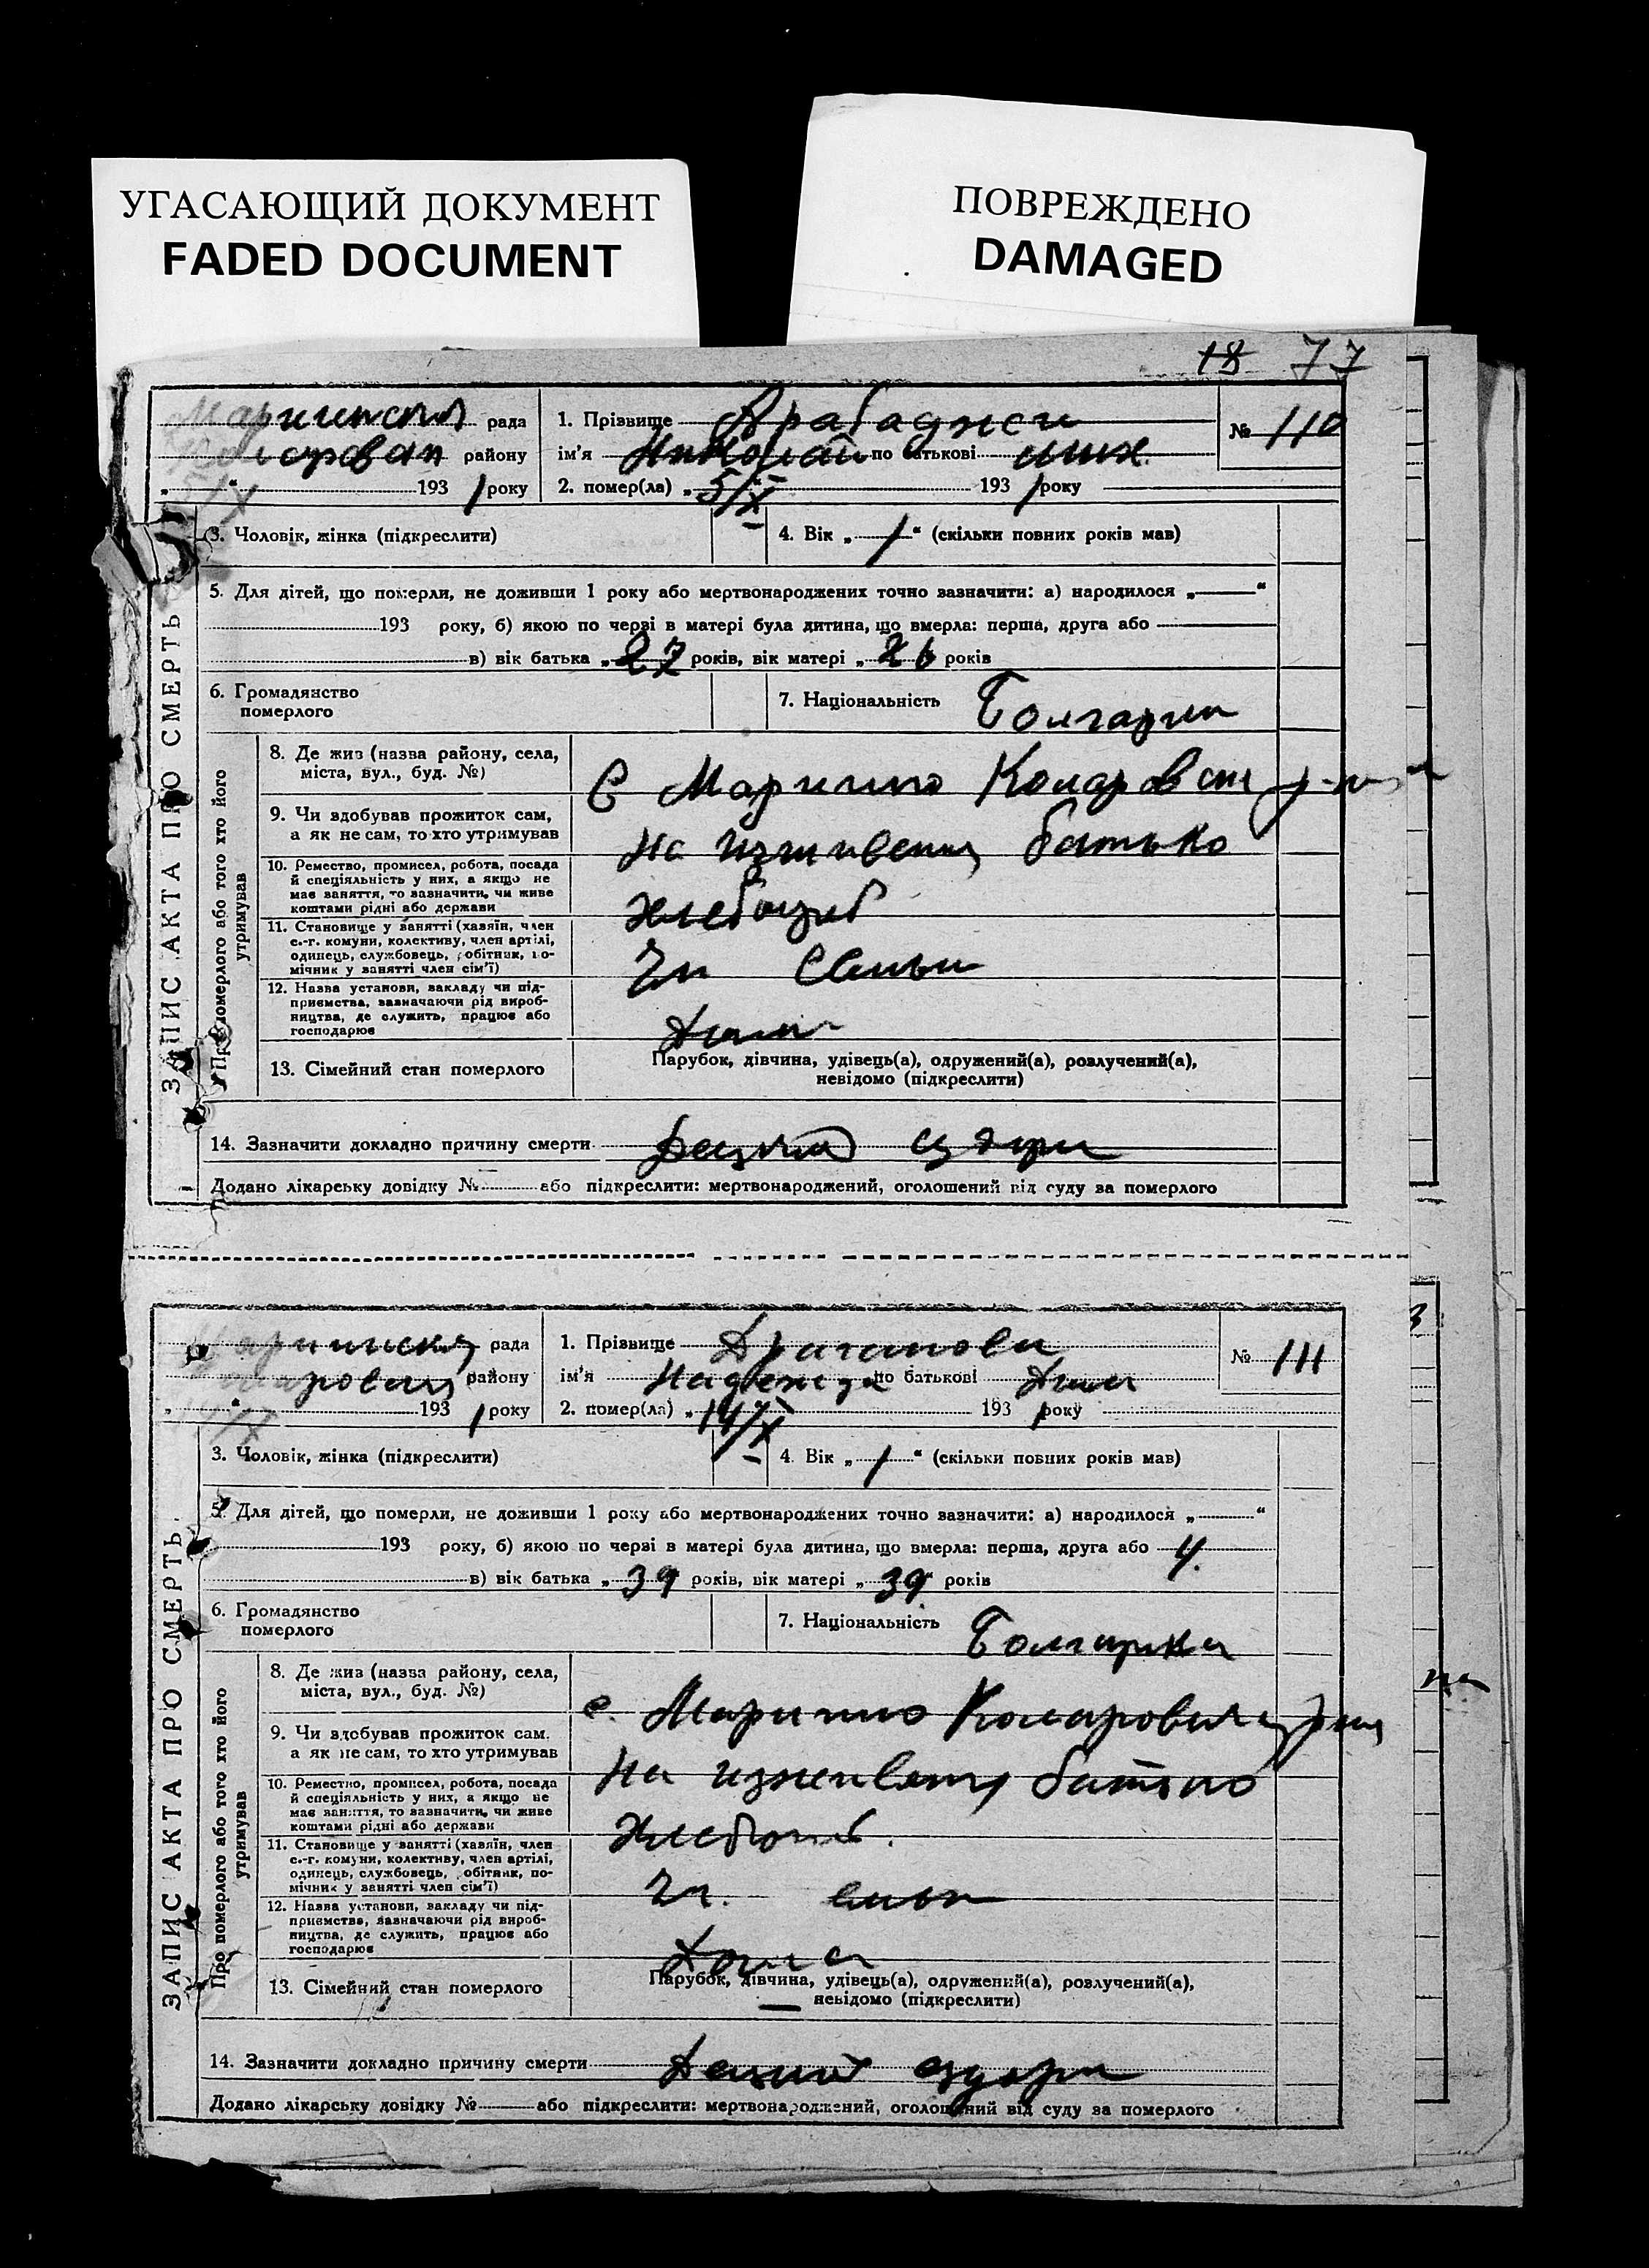 УГАСАЮЩИЙ ДОКУМЕНТ
FADED DOCUMENT
ПОВРЕЖДЕНО
DAMAGED
18 77
ЗАПИС АКТА ПРО СМЕРТЬ
рада
району
193 1 року
1. Прізвище Арабаджи
ім'я Николай по батькові Мих.
2. помер(ла) „ 5/X 193 1 року
№ 110
3. Чоловік, жінка (підкреслити)
4. Вік „ 1 “ (скільки повних років мав)
5. Для дітей, що померли, не доживши 1 року або мертвонароджених точно зазначити: а) народилося „ “
193 року, б) якою по черзі в матері була дитина, що вмерла: перша, друга або
в) вік батька „ 27 років, вік матері „ 26 років
6. Громадянство
померлого
7. Національність Болгарин
Про померлого або того хто його
утримував
8. Де жив (назва району, села,
міста, вул., буд. №)
С Марино
9. Чи здобував прожиток сам,
а як не сам, то хто утримував
На батько
10. Ремество, промисел, робота, посада
й спеціяльність у них, а якщо не
має заняття, то зазначити, чи живе
коштами рідні або держави
11. Становище у занятті (хазяїн, член
с.-г. комуни, колективу, член артілі,
одинець, службовець, робітник, по-
мічник у занятті член сім'ї)
Чл Семьи
12. Назва установи, закладу чи під-
приємства, зазначаючи рід вироб-
ництва, де служить, працює або
господарює
Дома
13. Сімейний стан померлого
Парубок, дівчина, удівець(а), одружений(а), розлучений(а),
невідомо (підкреслити)
14. Зазначити докладно причину смерти
Додано лікарську довідку № або підкреслити: мертвонароджений, оголошений від суду за померлого
ЗАПИС АКТА ПРО СМЕРТЬ
рада
району
193 1 року
1. Прізвище Драганова
ім'я Надежда по батькові
2. помер(ла) „ 14/X 193 1 року
№ 111
3. Чоловік, жінка (підкреслити)
4. Вік „ 1 “ (скільки повних років мав)
5. Для дітей, що померли, не доживши 1 року або мертвонароджених точно зазначити: а) народилося „ “
193 року, б) якою по черзі в матері була дитина, що вмерла: перша, друга або 4.
в) вік батька „ 39 років, вік матері „ 39 “ років
6. Громадянство
померлого
7. Національність Болгарка
Про померлого або того хто його
утримував
8. Де жив (назва району, села,
міста, вул., буд. №)
с. Марино
9. Чи здобував прожиток сам,
а як не сам, то хто утримував
На батько
10. Ремество, промисел, робота, посада
й спеціяльність у них, а якщо не
має заняття, то зазначити, чи живе
коштами рідні або держави
11. Становище у занятті (хазяїн, член
с.-г. комуни, колективу, член артілі,
одинець, службовець, робітник, по-
мічник у занятті член сім'ї)
Чл.
12. Назва установи, закладу чи під-
приємства, зазначаючи рід вироб-
ництва, де служить, працює або
господарює
Дома
13. Сімейний стан померлого
Парубок, дівчина, удівець(а), одружений(а), розлучений(а),
невідомо (підкреслити)
14. Зазначити докладно причину смерти
Додано лікарську довідку № або підкреслити: мертвонароджений, оголошений від суду за померлого